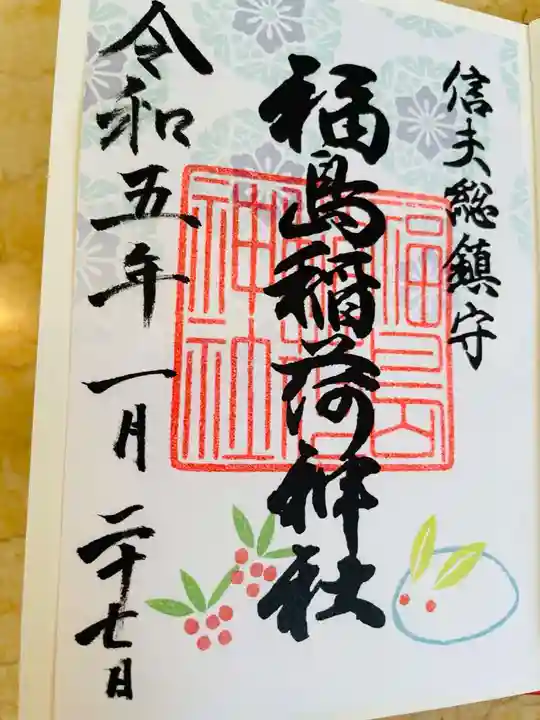 信夫総鎮守
福島稲荷神社
福島稲荷神社
令和五年一月二十七日